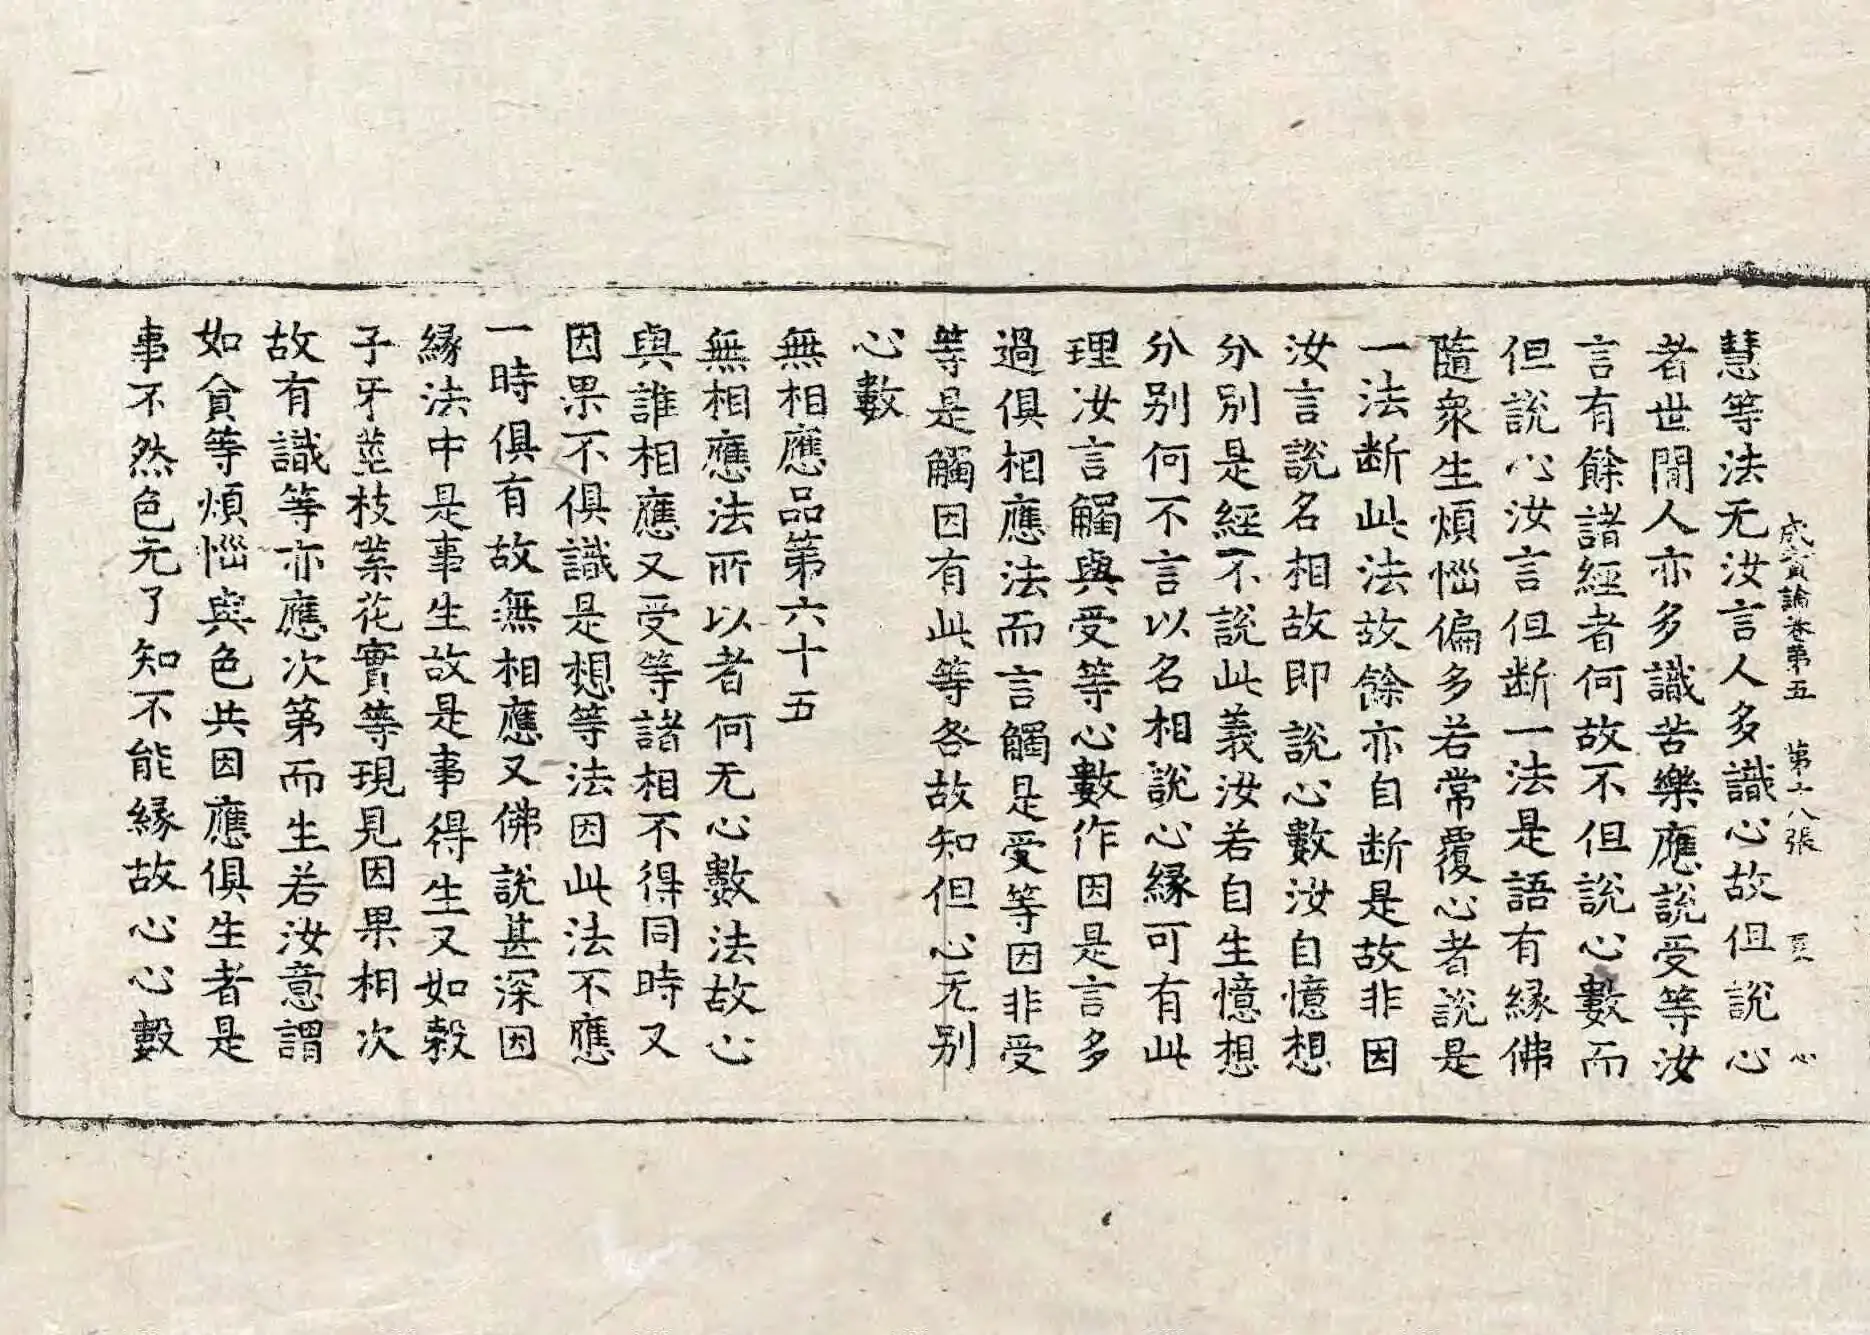 慧等法无汝言人多識心故但說心
成實論卷第五 第十八張 心
者世間人亦多識苦樂應說受等汝
言有餘諸經者何故不但說心數而
但說心汝言但斷一法是語有緣佛
隨衆生煩惱偏多若常覆心者說是
一法斷此法故餘亦自斷是故非因
汝言說名相故即說心數汝自憶想
分別是經不說此義汝若自生憶想
分別何不言以名相說心緣可有此
理汝言觸與受等心數作因是言多
過俱相應法而言觸是受等因非受
等是觸因有此等各故知但心无別
心數
無相應品第六十五
無相應法所以者何无心數法故心
與誰相應又受等諸相不得同時又
因果不俱識是想等法因此法不應
一時俱有故無相應又佛說甚深因
緣法中是事生故是事得生又如穀
子牙莖枝葉花實等現見因果相次
故有識等亦應次第而生若汝意謂
如貪等煩惱與色共因應俱生者是
事不然色无了知不能緣故心心數